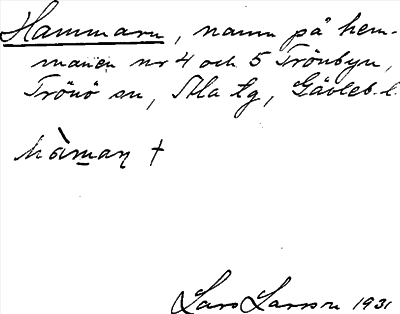 Hammarn, namn på hem-
manen nr 4 och 5 Trönbyn,
Trönö sn, Ala tg, Gävleb. l.
hàmaṇ †
Lars Larsson 1931